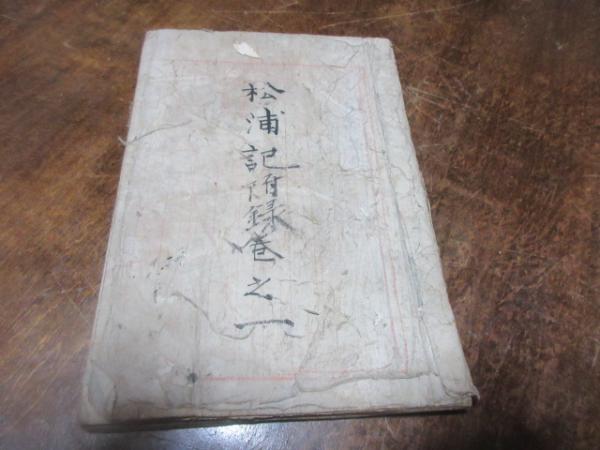 松浦記附録巻之一